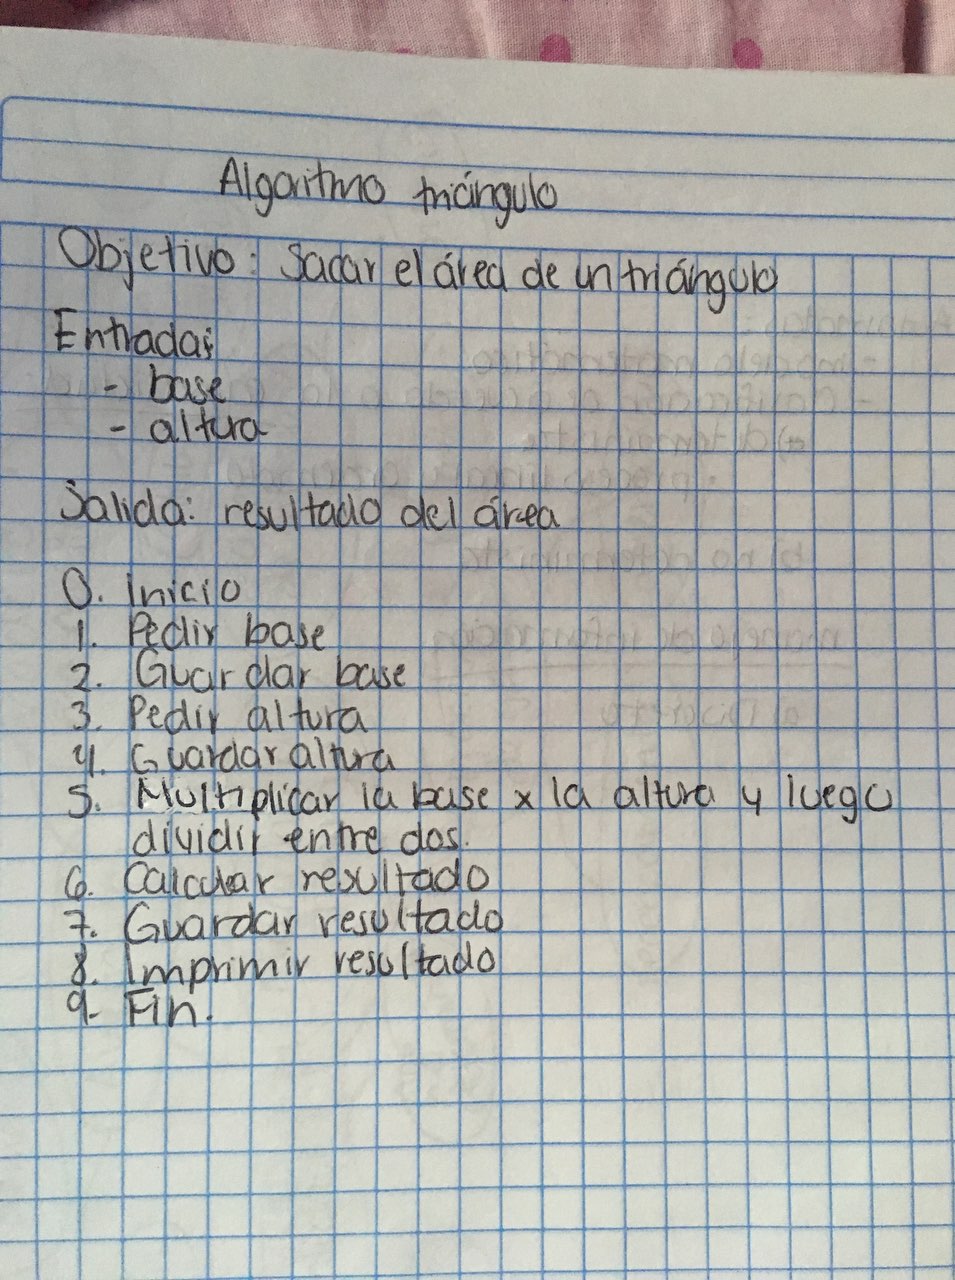 Algoritmo triángulo
Objetivo: Sacar el área de un triángulo
Entradas:
- base
- altura
Salida: resultado del área
0. Inicio
1. Pedir base
2. Guardar base
3. Pedir altura
4. Guardar altura
5. Multiplicar la base x la altura y luego
dividir entre dos.
6. Calcular resultado
7. Guardar resultado
8. Imprimir resultado
9. Fin.